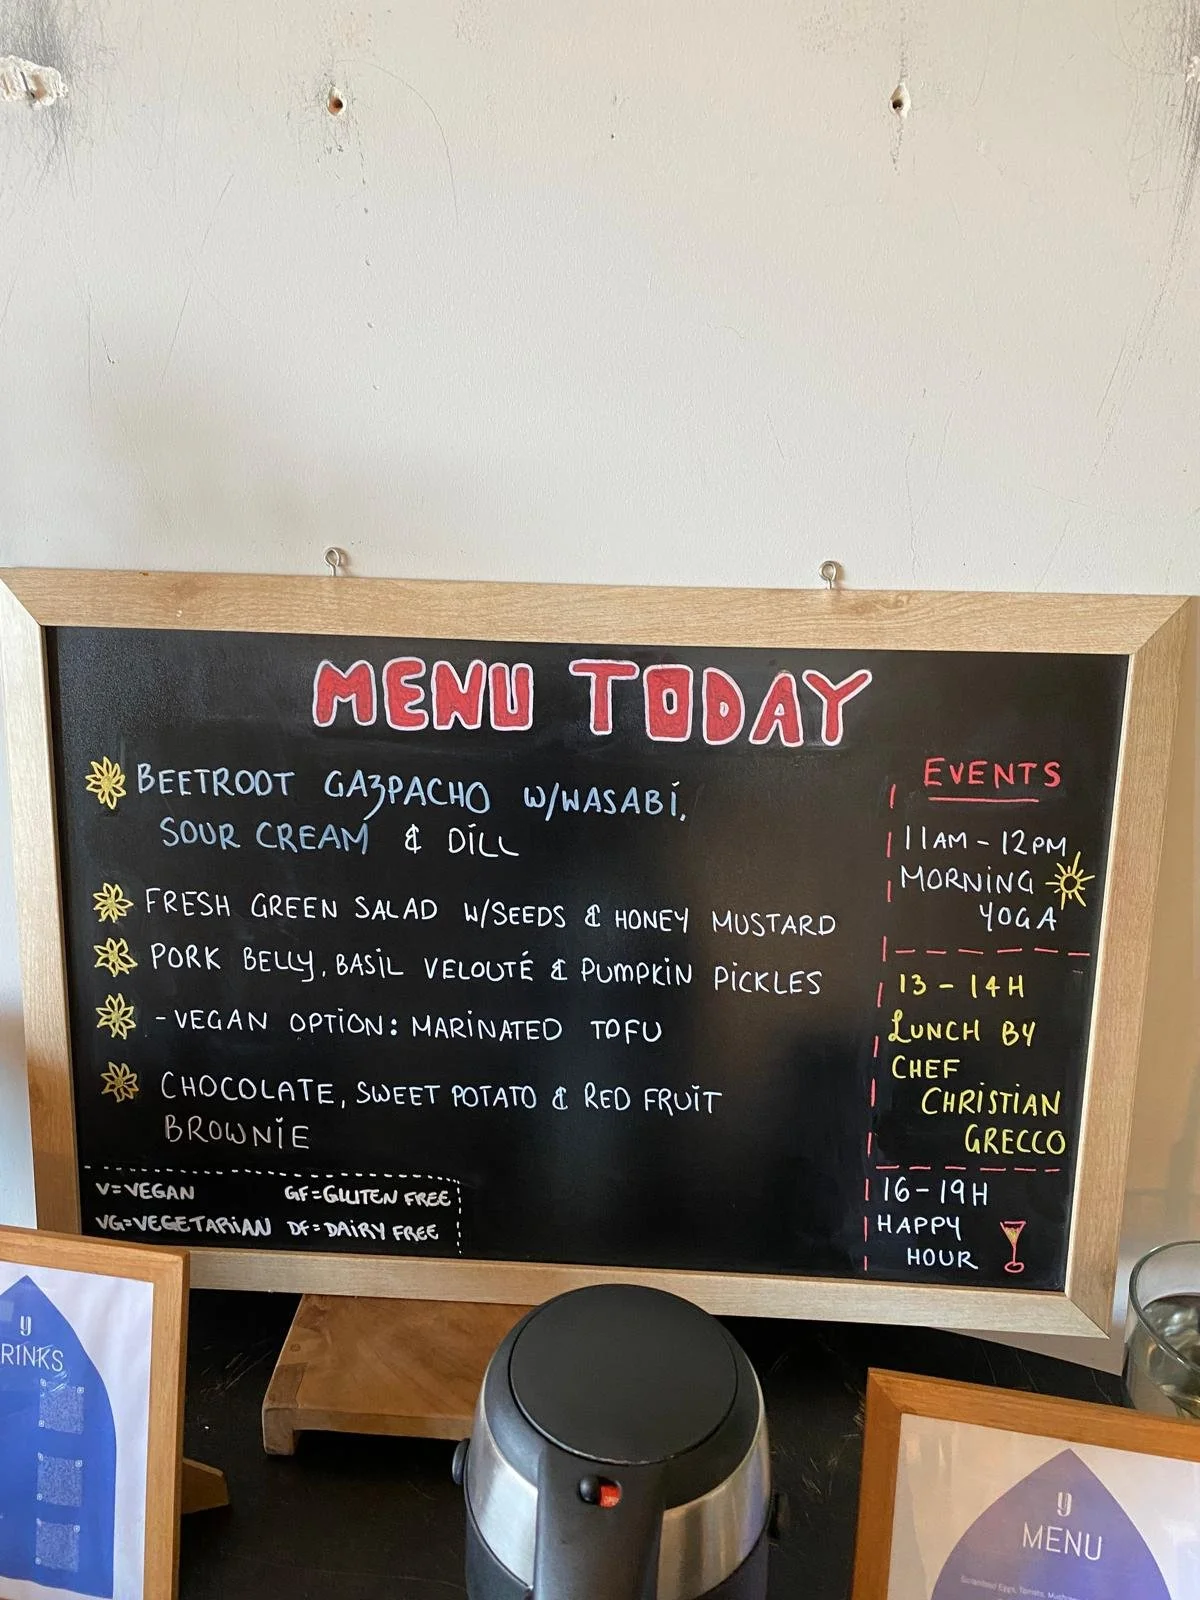 MENU TODAY
BEETROOT GAZPACHO W/WASABI,
SOUR CREAM & DILL
FRESH GREEN SALAD W/SEEDS & HONEY MUSTARD
PORK BELLY, BASIL VELOUTÉ & PUMPKIN PICKLES
- VEGAN OPTION: MARINATED TOFU
CHOCOLATE, SWEET POTATO & RED FRUIT
BROWNIE
V=VEGAN GF=GLUTEN FREE
VG=VEGETARIAN DF=DAIRY FREE
EVENTS
11AM-12PM
MORNING
YOGA
13-14H
LUNCH BY
CHEF
CHRISTIAN
GRECCO
16-19H
HAPPY
HOUR
y
RINKS
y
MENU
Scrambled Eggs, Tomato,